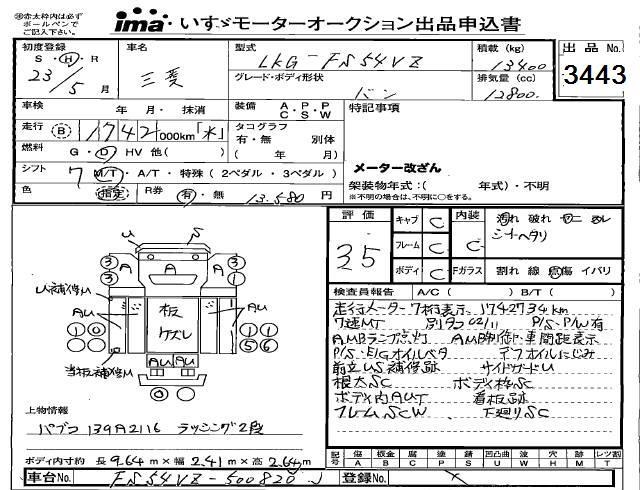 ㊟赤太枠内は必ず
ボールペンで
ご記入下さい。
ima いすゞモーターオークション出品申込書
初度登録 車名 型式 積載 (kg) 出品No.
S・H・R 23/5 月 三菱 LKG-FS54VZ 13400 3443
グレード・ボディ形状 排気量 (cc)
バン 12800.
車検 年 月・ 抹消 装備 A・P・P C・S・W 特記事項
走行 B 1742 000km「水」 タコグラフ
有・無 別体
燃料 G・D HV 他( ) ( 年 月)
シフト 7 M/T・A/T・特殊(2ペダル・3ペダル) メーター改ざん
色 指定 R券 有・無 13.580 円 架装物年式:( 年式)・不明
※不明の場合は、不明に○をする。
評価 キャブ C 内装 汚れ 破れ
シートヘタリ
3.5 フレーム C C
ボディ C Fガラス 割れ 線 飛傷 イバリ
検査員報告 A/C( ) B/T( )
走行メーター7桁表示 1742734km
7速MT P/S・P/W有
AMBランプ点灯 車間距離表示
P/S・E/Gオイルベタ デフオイルにじみ
前立US補修跡 サイドガードU
根太SC ボディ枠SC
ボディ内AUT 看板跡
フレームSCW 下廻りSC
U S
A A A
3 3 3 1
U補修M
AU AU
板 ケズレ
1 0 1 1
5 6
当板補修M
AU AU
0
上物情報
パブコ 139A2116 ラッシング2段
ボディ内寸約 長 9.64m×幅 2.41m×高 2.64m
記号 傷 板金 腐 塗 錆 凹凸曲 波 穴 跡 レツ割
A B C P S U W H M T
車台No. FS54VZ-500820 登録No.